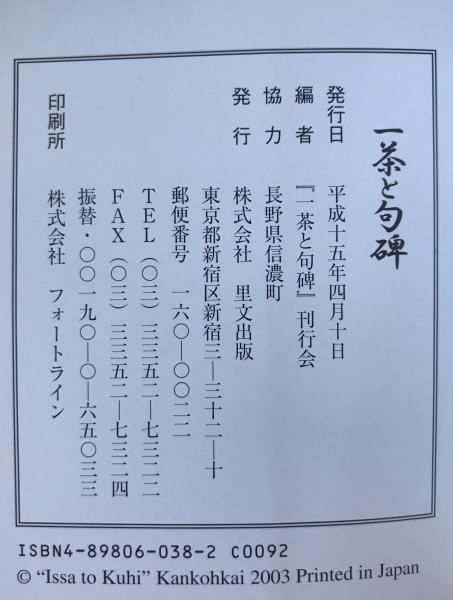 一茶と句碑
発行日 平成十五年四月十日
編者 『一茶と句碑』刊行会
協力 長野県信濃町
発行 株式会社 里文出版
東京都新宿区新宿三—三十二—十
郵便番号 一六〇—〇〇二二
TEL(〇三)三三五二—七三二二
FAX(〇三)三三五二—七三二四
振替・〇〇一九〇—〇—六五〇三三
印刷所 株式会社 フォートライン
ISBN4-89806-038-2 C0092
© “Issa to Kuhi” Kankohkai 2003 Printed in Japan